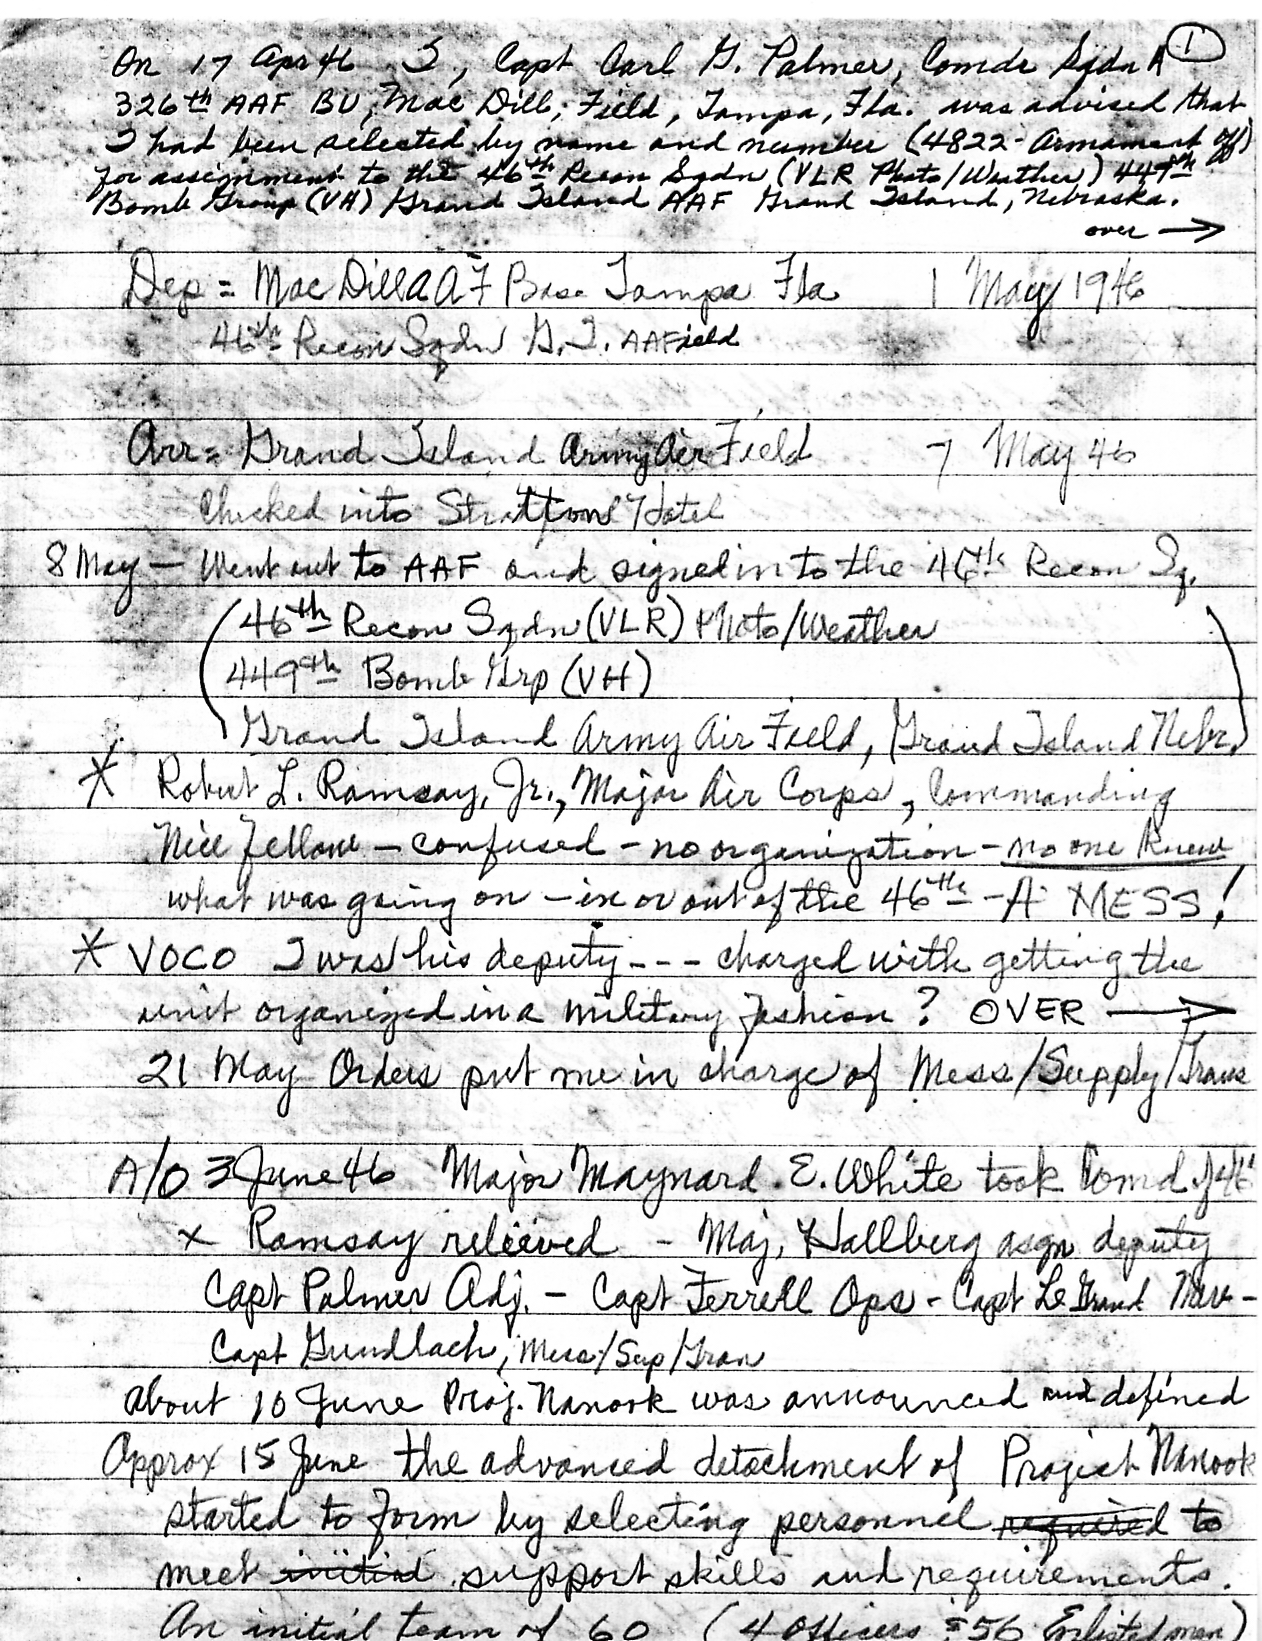 1
On 17 Apr 46 I, Capt Carl G. Palmer, Comdr Sqdn A
326th AAF BU, Mac Dill, Field, Tampa, Fla. was advised that
I had been selected by name and number (4822-Armament Off)
for assinment to the 46th Recon Sqdn (VLR Photo/Weather) 449th
Bomb Group (VH) Grand Island AAF Grand Island, Nebraska.
over →
Dep = Mac Dill AAF Base Tampa Fla 1 May 1946
46th Recon Sqdn G.I. AAField
Arr = Grand Island Army Air Field 7 May 46
Checked into Stratton Hotel
8 May — Went out to AAF and signed in to the 46th Recon Sq.
(46th Recon Sqdn (VLR) Photo/Weather
449th Bomb Grp (VH)
Grand Island Army Air Field, Grand Island Nebr.)
* Robert L. Ramsay, Jr., Major Air Corps, Commanding
Nice fellow — confused - no organization - no one knew
what was going on — in or out of the 46th - A MESS!
* VOCO I was his deputy --- charged with getting the
unit organized in a military fashion? OVER →
21 May Orders put me in charge of Mess/Supply/Trans
A/O 3 June 46 Major Maynard E. White took Comd of 46th
x Ramsay relieved - Maj. Hallberg asgn deputy
Capt Palmer Adj. - Capt Ferrell Ops - Capt Le Grand Nav -
Capt Gundlach, Mess/Sup/Tran
About 10 June Proj. Nanook was announced and defined
Approx 15 June the advanced detachment of Project Nanook
started to form by selecting personnel required to
meet initial support skills and requirements.
An initial team of 60 (4 Officers & 56 Enlisted men)